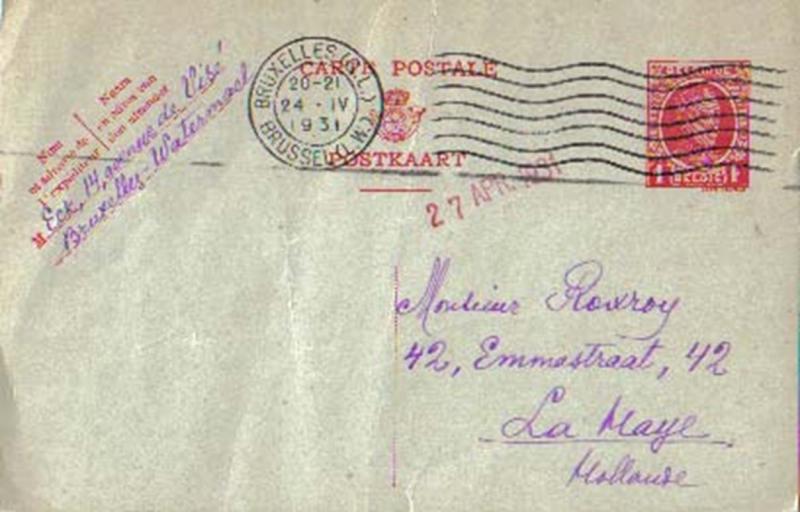 Nom
et adresse de
l'expéditeur
Naam
en adres van
den afzender
M Eck, 14, avenue de Visé
Bruxelles-Watermael
BRUXELLES (Q.L.)
20-21
24 - IV
1931
BRUSSEL (L.W.)
CARTE POSTALE
POSTKAART
27 APR. 1931
BELGIE
Monsieur Roxroy
42, Emmastraat, 42
La Haye
Hollande